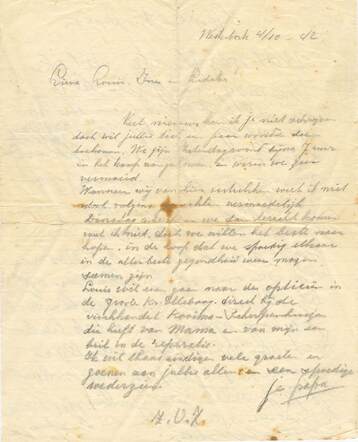 Westerbork 4/10 - 42
Lieve Louis, Ines en Liduke
Veel nieuws kan ik je niet schrijven
doch wil jullie toch een paar woorden doen
toekomen. We zijn uur
in het kamp aangekomen en waren we zeer
vermoeid.
Wanneer wij van hier vertrekken weet ik niet
doch volgens vermoedelijk
Dinsdag a.s. en we dan terecht komen
weet ik niet, doch we willen het beste maar
hopen. in de hoop dat we spoedig elkaar
in de allerbeste gezondheid weer mogen
zien.
Louis wil een gaan naar de opticiën in
de groote direct bij de
vischhandel
die heeft van Mama en van mijn een
bril in de reparatie.
Ik wil thans eindigen vele groeten en
zoenen aan jullie allen en een spoedige
wederzien
je papa
Z.O.Z